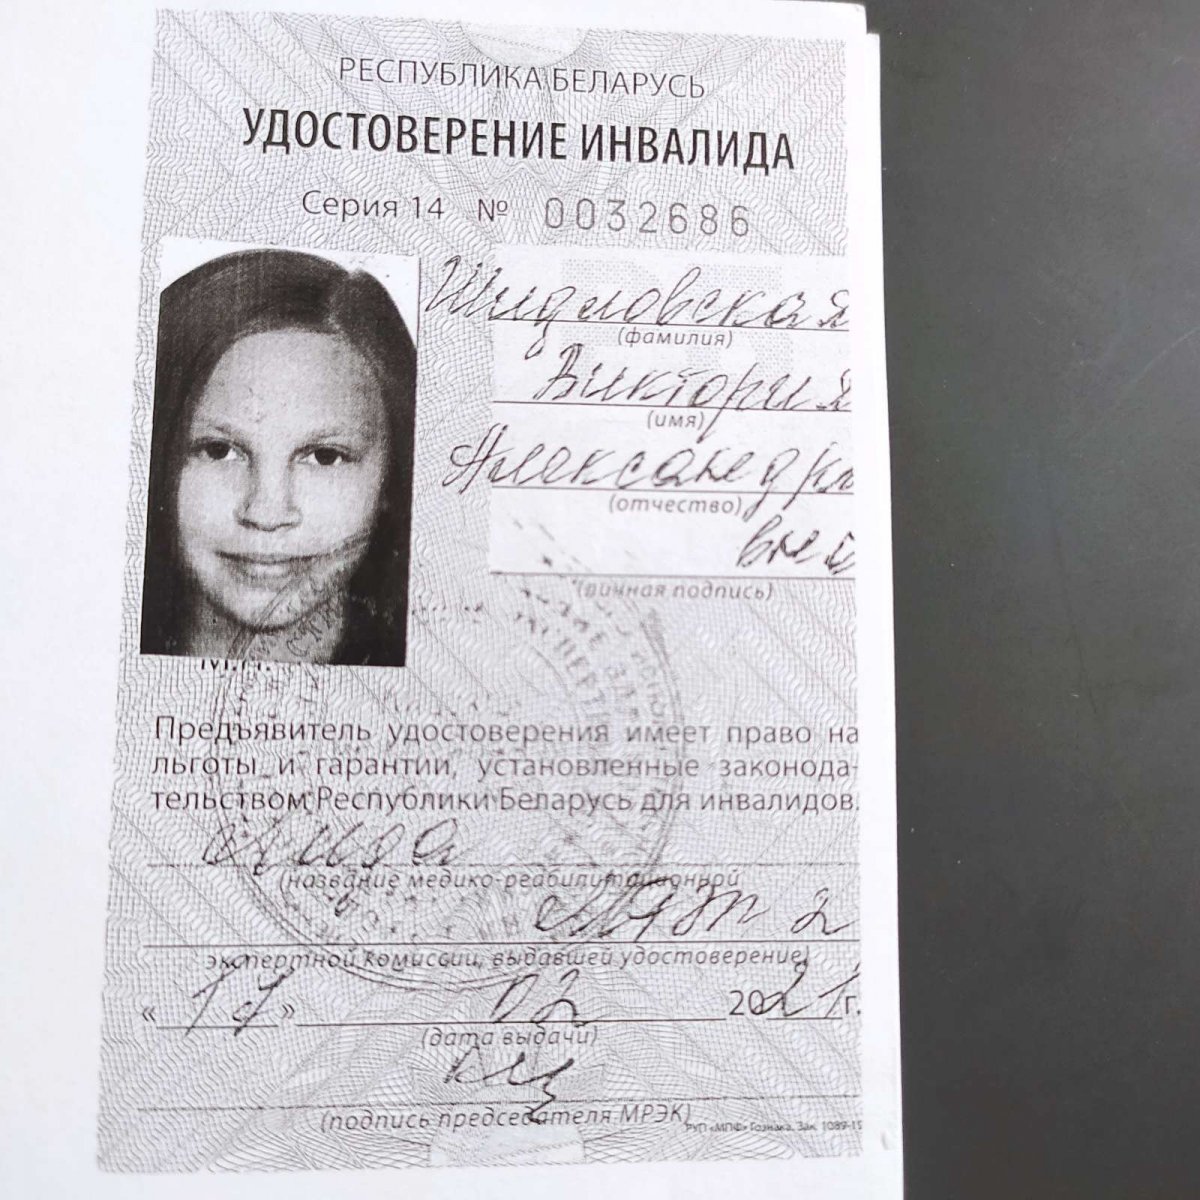 РЕСПУБЛИКА БЕЛАРУСЬ
УДОСТОВЕРЕНИЕ ИНВАЛИДА
Серия 14 № 0032686
Шидловская
(фамилия)
Виктория
(имя)
Александро
(отчество)
вна
(личная подпись)
М.П.
Предъявитель удостоверения имеет право на
льготы и гарантии, установленные законода-
тельством Республики Беларусь для инвалидов.
(название медико-реабилитационной
2
экспертной комиссии, выдавшей удостоверение)
« 17 » 02 2021г.
(дата выдачи)
(подпись председателя МРЭК)
РУП «МПФ» Гознака. Зак. 1089-15